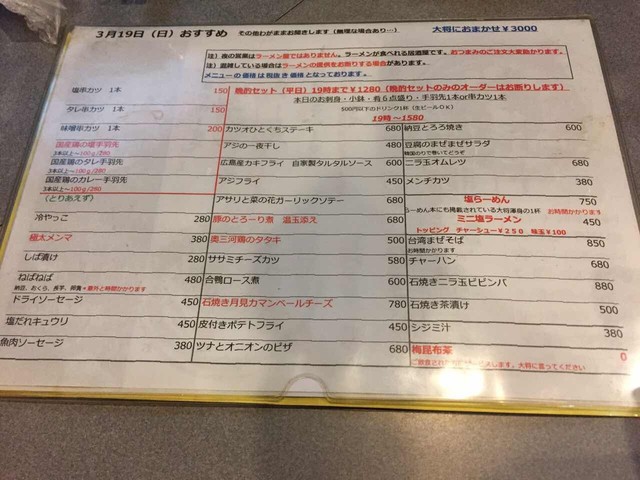 3月19日(日)おすすめ その他わがままお聞きします(無理な場合あり…) 大将におまかせ¥3000
注)夜の営業はラーメン屋ではありません。ラーメンが食べれる居酒屋です。おつまみのご注文大変助かります。
注)混雑している場合はラーメンの提供をお断りする場合があります。
メニューの価格は税抜き価格となっております。
塩串カツ 1本 150
タレ串カツ 1本 150
味噌串カツ 1本 200
国産鶏の塩手羽先
3本以上~100g/280
国産鶏のタレ手羽先
3本以上~100g/280
国産鶏のカレー手羽先
3本以上~100g/280
(とりあえず)
冷やっこ 280
極太メンマ 380
しば漬け 280
ねばねば 480
納豆、おくら、長芋、卵黄*意外と時間かかります
ドライソーセージ 450
塩だれキュウリ 450
魚肉ソーセージ 380
晩酌セット(平日)19時まで¥1280(晩酌セットのみのオーダーはお断りします)
本日のお刺身・小鉢・肴6点盛り・手羽先1本or串カツ1本
500円以下のドリンク1杯(生ビールOK)
19時~1580
カツオひとくちステーキ 680
アジの一夜干し 480
広島産カキフライ 自家製タルタルソース 600
アジフライ 450
アサリと菜の花ガーリックソテー 680
豚のとろーり煮 温玉添え 680
奥三河鶏のタタキ 500
ササミチーズカツ 580
合鴨ロース煮 600
石焼き月見カマンベールチーズ 780
皮付きポテトフライ 450
ツナとオニオンのピザ 680
納豆とろろ焼き 600
豆腐のまぜまぜサラダ
韓国のりで巻いてどうぞ
ニラ玉オムレツ 680
メンチカツ 380
塩らーめん 750
らーめん本にも掲載されている大将渾身の1杯 お時間かかります
ミニ塩ラーメン 450
トッピング チャーシュー¥250 味玉¥100
台湾まぜそば 850
お時間かかります
チャーハン 680
石焼きニラ玉ビビンバ 880
石焼き茶漬け 500
シジミ汁 380
梅昆布茶 0
します。大将に言ってください